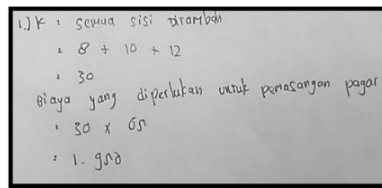 1.) K : semua sisi ditambah
: 8 + 10 + 12
: 30
Biaya yang diperlukan untuk pemasangan pagar
: 30 x 65
: 1.950